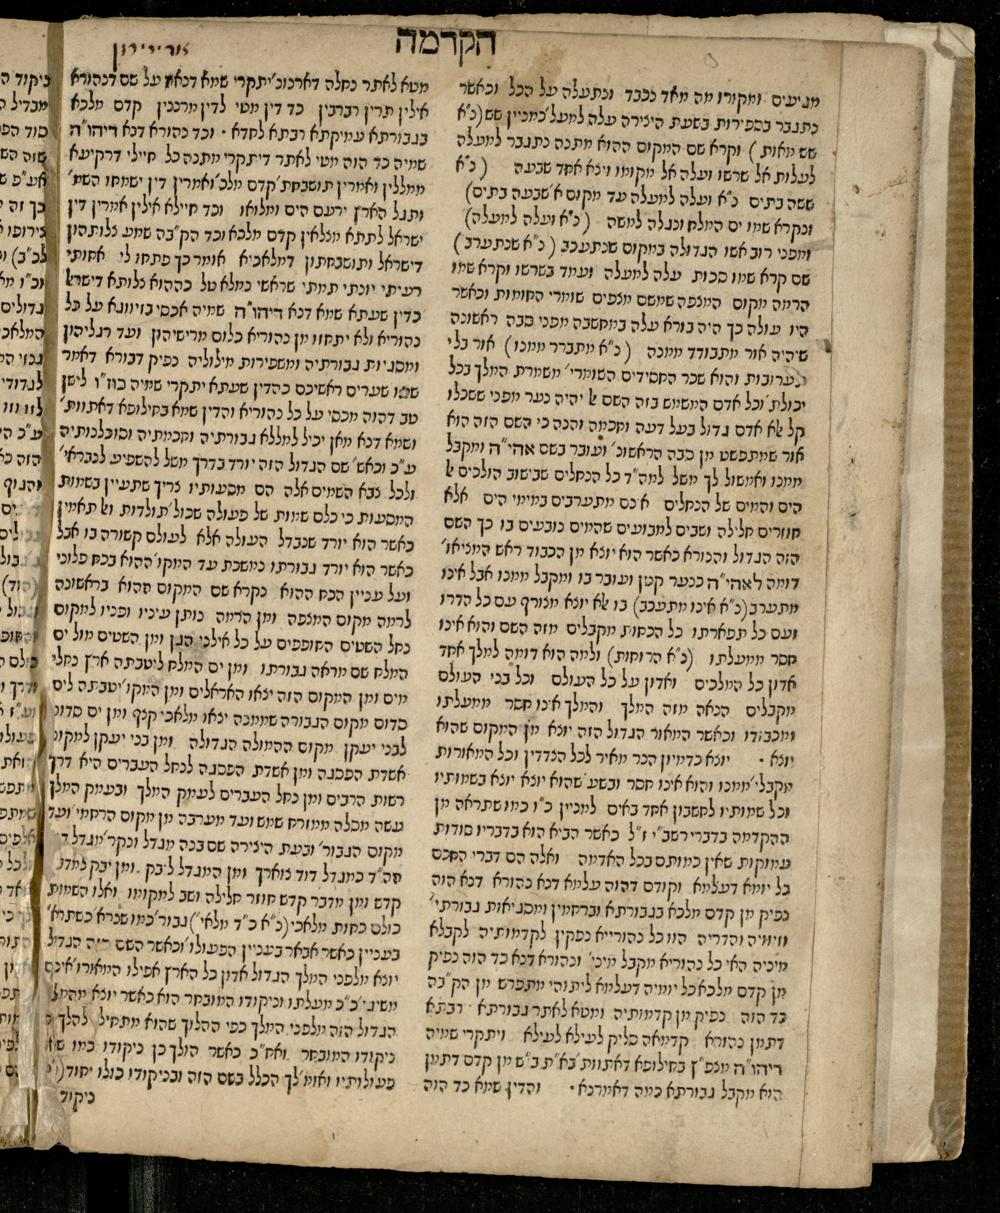 הקדמה
מגיעים ומקורו מה מאד נכבד ונתעלה על הכל וכאשר
נתגבר בספירות בשעת היצירה עלה למעל' כמניין שש (נ"א
שש מאות) וקרא שם המקום ההוא מתנה נתגבר למעלה
לעלות אל שרשו ועלה אל מקומו ויצא אחד שבעה (נ"א
ששה בתים נ"א ועלה למעלה עד מקום א' שבעה בתים)
ונקרא שמו ים המלח ונגלה למשה (נ"א ועלה למעלה)
ומפני רוב אשו הגדולה במקום שנתעכב (נ"א שנתערב)
שם קרא שמו סכות עלה למעלה ועמד בשרשו וקרא שמו
הרמה מקום המצפה שמשם מצפים שומרי החומות וכאשר
היו עולה כך היה בורא עלה במחשבה מפני סבה ראשונה
שיהיה אור מתבודד ממנה (נ"א מתברר ממנו) אור בלי
תערובות והוא שכר החסידים השומרי' משמרת המלך בכל
יכולת' וכל אדם המשמש בזה השם לא יהיה נער מפני ששכלו
קל לא אדם גדול בעל דעה וחכמה והנה כי השם הזה הוא
אור שמתפשט מן סבה הראשונ' ועובר בשם אהי"ה ומקבל
ממנו ואמשול לך משל למה"ד כל הנחלים שבישוב הולכים לא
הים והמים של הנחלים אינם מתערבים במימי הים אלא
חוזרים חלילה ושבים למבועים שהמים נובעים בו כך השם
הזה הגדול והנורא כאשר הוא יוצא מן הכבוד ראש המציאו'
דומה לאהי"ה כנער קטן ועובר בו ומקבל ממנו אבל אינו
מתערב (נ"א אינו מתעכב) בו לא יוצא מצורף עם כל הדרו
ועם כל תפארתו כל הכחות מקבלים מזה השם והוא אינו
חסר ממעלתו (נ"א הרוחות) ולמה הוא דומה למלך אחד
אדון כל המלכים ואדון על כל העולם וכל בני העולם
מקבלים הנאה מזה המלך והמלך אינו חסר ממעלתו
ומכבודו וכאשר המאור הגדול הזה יוצא מן המקום שהוא
יוצא יוצא כדמיון הנר מאיר לכל הצדדין וכל המאורות
מקבלי' ממנו והוא אינו חסר ובשע' שהוא יוצא יוצא בשמותיו
וכל שמותיו לחשבון אחד באים למניין כ"ו כמו שתראה מן
ההקדמה בדברי רשב"י ז"ל כאשר הביא הוא בדבריו סודות
עמוקות שאין כמותם בכל האדמה ואלה הם דברי החכם
כל יומא דעלמא וקודם דהוה עלמא דנא נהורא דנא הוה
נפיק מן קדם מלכא בגבורתא וברחמין ומסגיאות גבורתי'
וזיויה והדריה הוו כל נהורייא נפקין לקדמותיה לקבלא
מיניה האי כל נהוריא מקבל מיני' ונהורא דנא כד הוה נפיק
מן קדם מלכא כל יומיה דעלמא ליתוהי מתפרש מן הק"בה
כד הוה נפיק מן קדמותיה ומטא לאתר גבורתא רבתא
דתמן נהורא קדמאה סליק לעילא לעילא ויתקרי שמיה
דיהו"ה מצפ"ץ בחילופא דאתוות' בא"ת ב"ש מן קדם דתמן
הוא מקבל גבורתא כמה דאמרנא והדין שמא כד הוה
מטא לאתר נחלה דארנונ' יתקרי שמא דנא על שם דנהורא
אילין תרין רברבין כד דין מטי לדין מרננין קדם מלכא
בגבורתא עמיקתא רבתא לחדא וכד נהורא דנא דיהו"ה
שמיה כד הוה מטי לאתר דיתקרי מתנה כל חיילי דרקיעא
ממללין ואמרין תושבחת' קדם מלכ' ואמרין דין ישמחו השמ'
ותגל הארץ ירעם הים ומלואו וכד חיילא אילין אמרין דין
ישראל לתתא מצלאין קדם מלכא וכד הק"בה שמע צלותהון
דישראל ותושבחתון דמלאכיא אומר כך פתחו לי אחותי
רעיתי יונתי תמתי שראשי נמלא טל כההוא צלותא דישראל
בדין שעתא שמא דנא דיהו"ה שמיה אכסי בזיוונא על כל
נהוריא ולא יתחזו מן נהוריא כלום מרישיהון ועד רגליהון
ומסגיות גבורתיה ומשפירות מילוליה נפיק דבורא דאמר
שאו שערים ראשיכם כהדין שעתא יתקרי שמיה כוז"ו לישן
טב דהוה מכסי על כל נהוריא והדין שמא בחילופא דאתוות'
ושמא דנא מאן יכיל למללא גבורתיה וחכמתיה וסוכלנותיה
ע"כ וכאש' שם הגדול הזה יורד בדרך משל להשפיע לנבראי'
ולכל צבא השמים אלה הם מסעותיו צריך שתעיין בשמות
המסעות כי כלם שמות של פעולה שכול' תולדות ולא תאמין
כאשר הוא יורד שנבדל העולה אלא לעולם קשורה בו אבל
כאשר הוא יורד גבורתו נמשכת עד המקו' ההוא בכח פלוני
ועל עניין הכח ההוא נקרא שם המקום ההוא בראשונה
לרמה מקום המצפה ומן הרמה נותן עיניו ופניו למקום
נחל השטים החופפים על כל אילני הגן ומן השטים מול ים
המלח שם מראה גבורתו ומן ים המלח ליטבתה ארץ נחלי
מים ומן המקום הזה יצאו האראלים ומן המקו' יטבתה לים
סדום מקום הגבורה שממנה יצאו מלאכי קצף ומן ים סדום
לבני יעקן מקום ההמולה הגדולה ומן בני יעקן למקום
אשדת הפסגה ומן אשדת הפסגה לנחל העברים היא דרך
רשות הרבים ומן נחל העברים לעמק המלך ובעמק המלך
עשה מסלה ממזרח שמש ועד מערבה מן מקום הרחמי' ועד
מקום הגבור' ובעת היצירה שם בנה מגדל ונקר' מגדל דוד
הה"ד כמגדל דוד צוארך ומן המגדל ליבק ומן יבק למדבר
קדש ומן מדבר קדש חוזר חלילה ושב למקומו ואלו השמות
כולם כחות מלאכי (נ"א כ"ד מלאי') גבור' כמו שנרא' כשתרא'
בעניין כאשר אבאר בעניין הפעולו' וכאשר השם הזה הגדול
יוצא מלפני המלך הגדול אדון כל הארץ אפילו המאורו' אינם
משיגי' כ"כ מעלתו וניקודו המובחר הוא כאשר יוצא מהמלך
הגדול הזה מלפני המלך כפי ההלוך שהוא מתחיל להלך
ניקודו המובחר ואח"כ כאשר הולך כן ניקודו כמו
פעולותיו ואומ' לך הכלל בשם הזה ובניקודו כולו יסוד
ניקוד